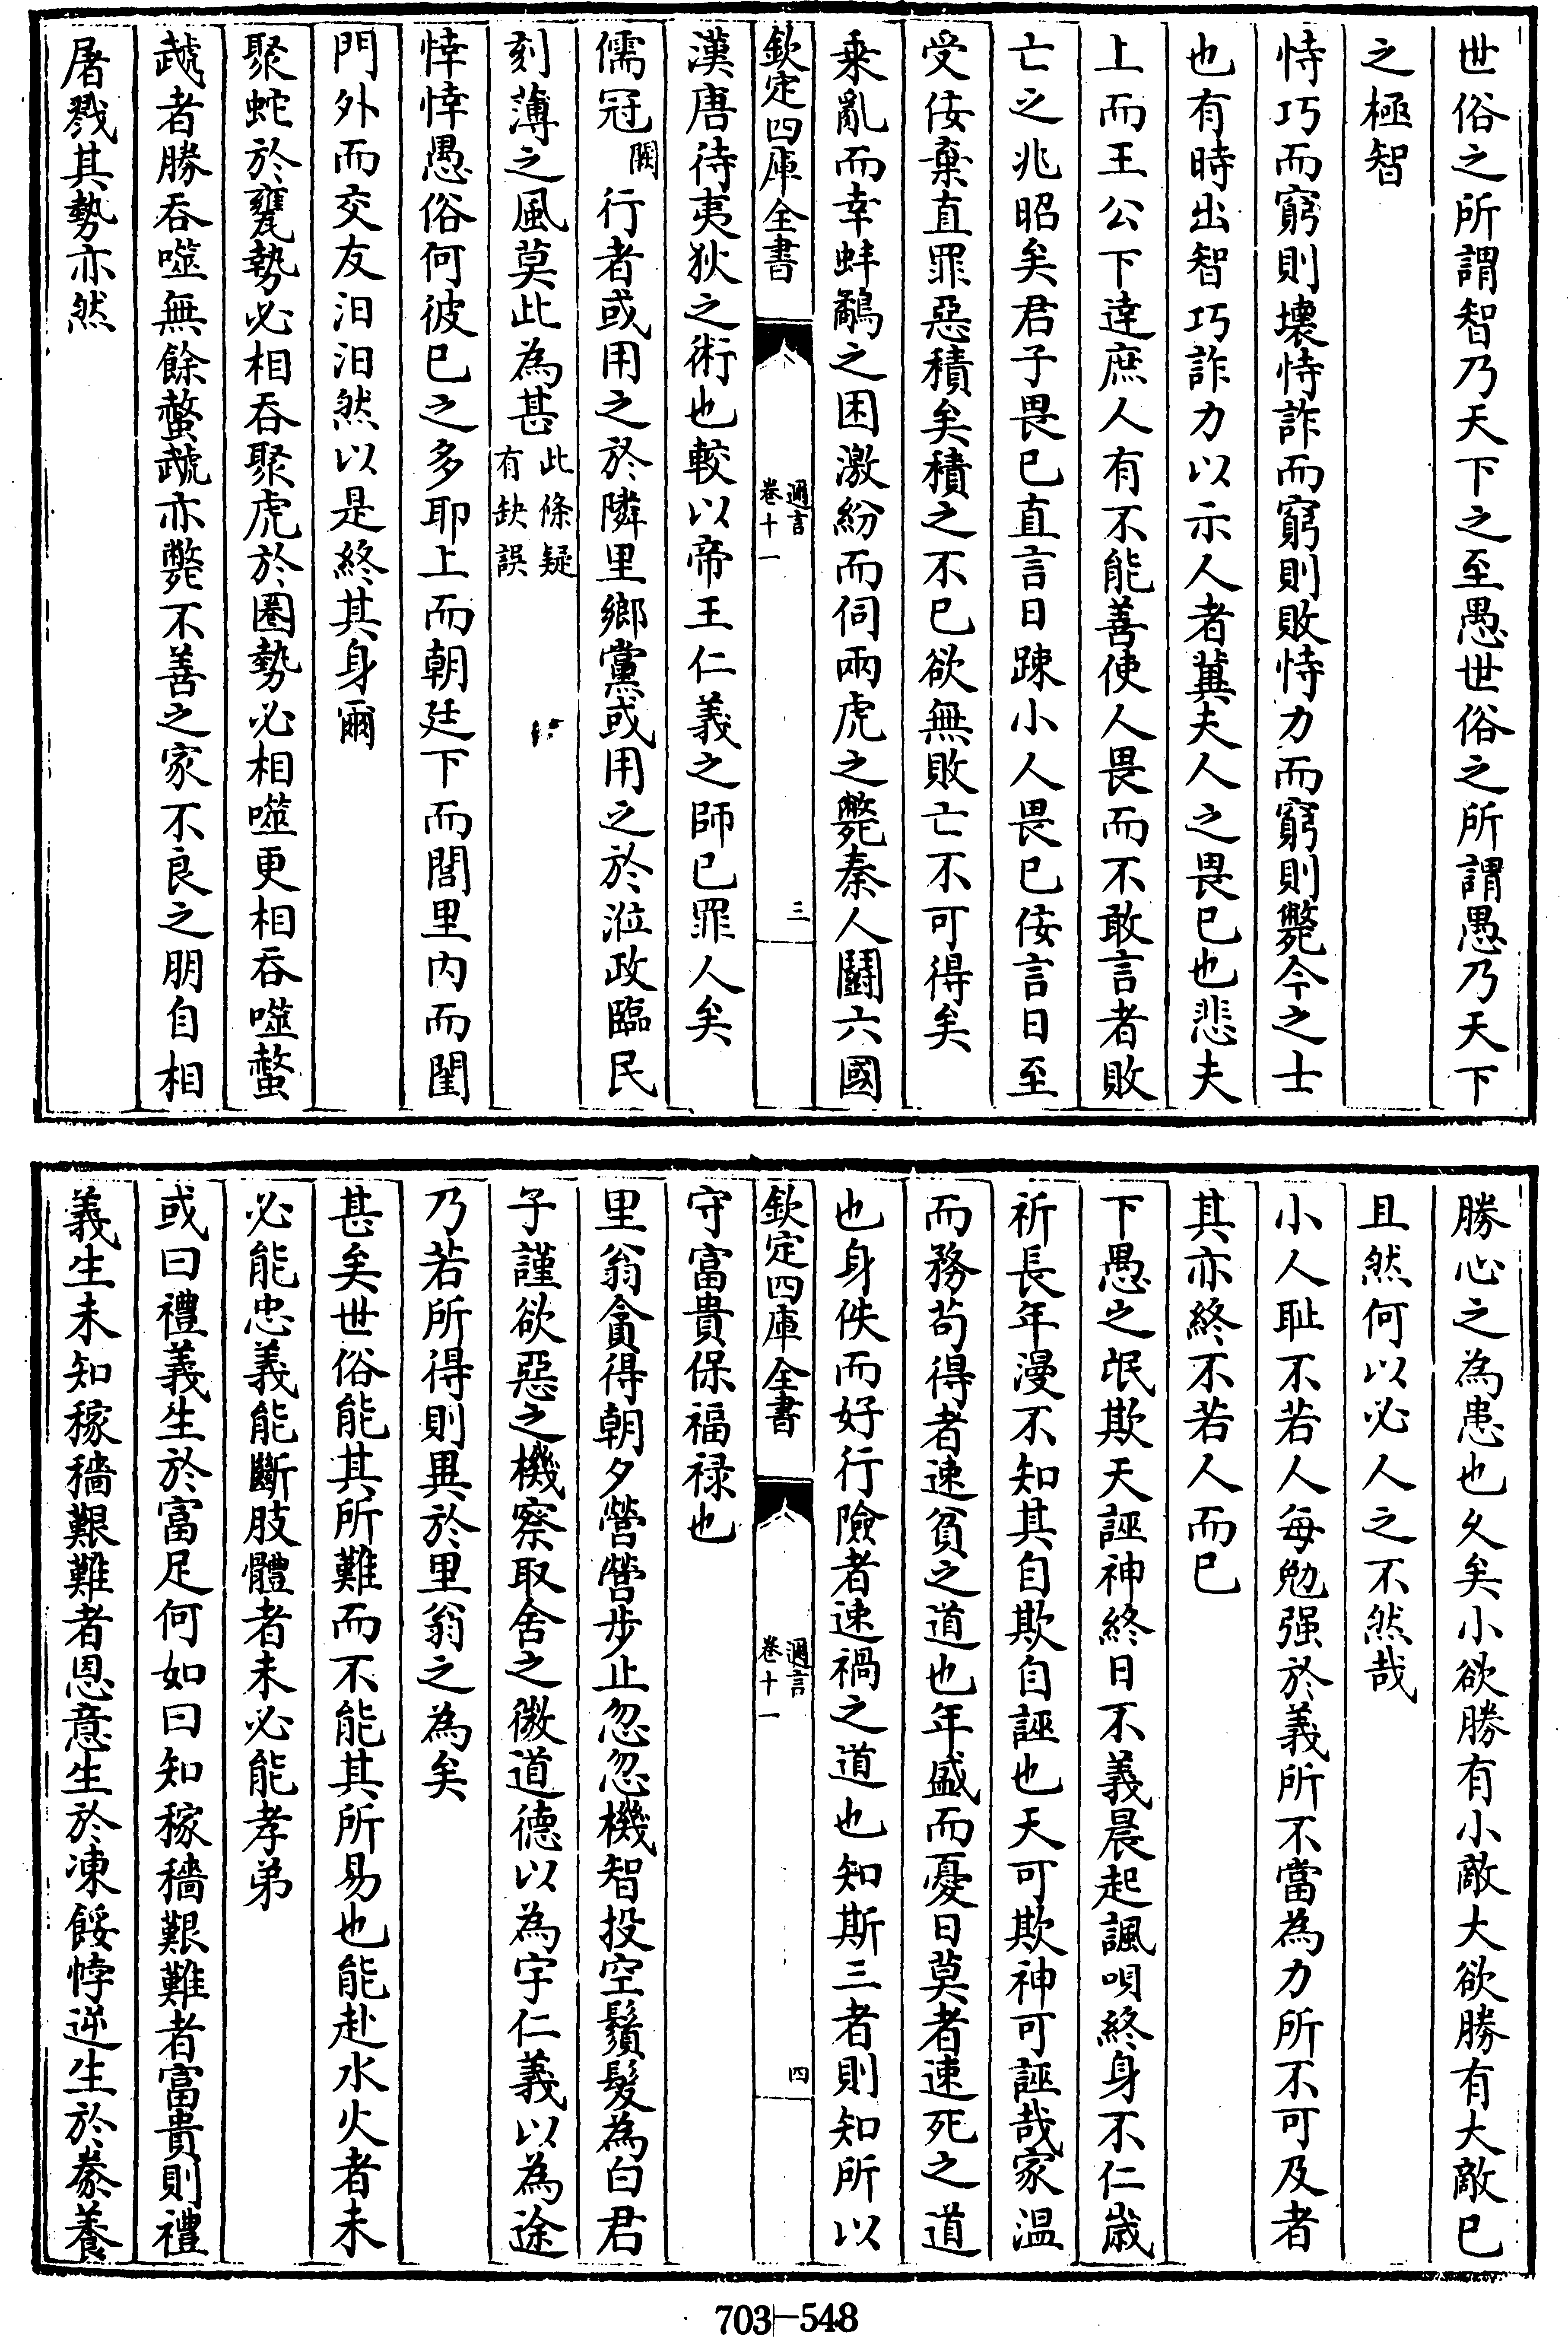 世俗之所謂智乃天下之至愚世俗之所謂愚乃天下
之極智
恃巧而窮則壊恃詐而窮則敗恃力而窮則斃今之士
也有時出智巧詐力以示人者冀夫人之畏已也悲夫
上而王公下逹庶人有不能善使人畏而不敢言者敗
亡之兆昭矣君子畏已直言日踈小人畏已佞言日至
受佞棄直罪惡積矣積之不已欲無敗亡不可得矣
乗亂而幸蚌鷸之困激紛而伺兩虎之斃秦人鬬六國
欽定四庫全書
邇言
卷十一
三
漢唐待夷狄之術也較以帝王仁義之師已罪人矣
儒冠闕行者或用之於隣里鄉黨或用之於涖政臨民
刻薄之風莫此為甚此條疑有缺誤
悻悻愚俗何彼已之多耶上而朝廷下而閭里内而閨
門外而交友汨汨然以是終其身爾
聚蛇於甕勢必相吞聚虎於圏勢必相噬更相吞噬螫
虣者勝吞噬無餘螫虣亦斃不善之家不良之朋自相
屠戮其勢亦然
勝心之為患也乆矣小欲勝有小敵大欲勝有大敵已
且然何以必人之不然哉
小人耻不若人每勉强於義所不當為力所不可及者
其亦終不若人而已
下愚之氓欺天誣神終日不義晨起諷唄終身不仁歳
祈長年漫不知其自欺自誣也天可欺神可誣哉家温
而務茍得者速貧之道也年盛而憂日莫者速死之道
也身佚而好行險者速禍之道也知斯三者則知所以
欽定四庫全書
邇言
卷十一
四
守富貴保福禄也
里翁貪得朝夕營營步止忽忽機智投空鬚髮為白君
子謹欲惡之機察取舍之微道德以為宇仁義以為途
乃若所得則異於里翁之為矣
甚矣世俗能其所難而不能其所易也能赴水火者未
必能忠義能斷肢體者未必能孝弟
或曰禮義生於富足何如曰知稼穡艱難者富貴則禮
義生未知稼穡艱難者恩意生於凍餒悖逆生於豢養
703-548